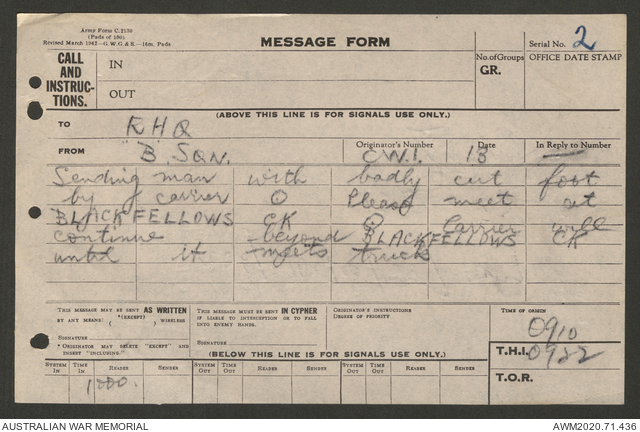 Army Form C.2136
(Pads of 100)
Revised March 1942—G.W.G.&S.—16m. Pads
MESSAGE FORM
Serial No. 2
CALL AND INSTRUCTIONS.
IN
OUT
No. of Groups
GR.
OFFICE DATE STAMP
(ABOVE THIS LINE IS FOR SIGNALS USE ONLY.)
TO RHQ
FROM "B" SQN.
Originator's Number C.W.1.
Date 13
In Reply to Number —
Sending man with badly cut foot
by carrier O Please meet at
BLACKFELLOWS CK O Carrier will
continue beyond BLACKFELLOWS CK
until it meets truck
THIS MESSAGE MAY BE SENT AS WRITTEN
BY ANY MEANS: ( *(EXCEPT) ) WIRELESS
SIGNATURE
* ORIGINATOR MAY DELETE "EXCEPT" AND
INSERT "INCLUDING."
THIS MESSAGE MUST BE SENT IN CYPHER
IF LIABLE TO INTERCEPTION OR TO FALL
INTO ENEMY HANDS.
SIGNATURE
ORIGINATOR'S INSTRUCTIONS
DEGREE OF PRIORITY
TIME OF ORIGIN
0910
T.H.I. 0922
T.O.R.
(BELOW THIS LINE IS FOR SIGNALS USE ONLY.)
SYSTEM IN TIME IN READER SENDER SYSTEM OUT TIME OUT READER SENDER SYSTEM OUT TIME OUT READER SENDER
1000.
AUSTRALIAN WAR MEMORIAL
AWM2020.71.436